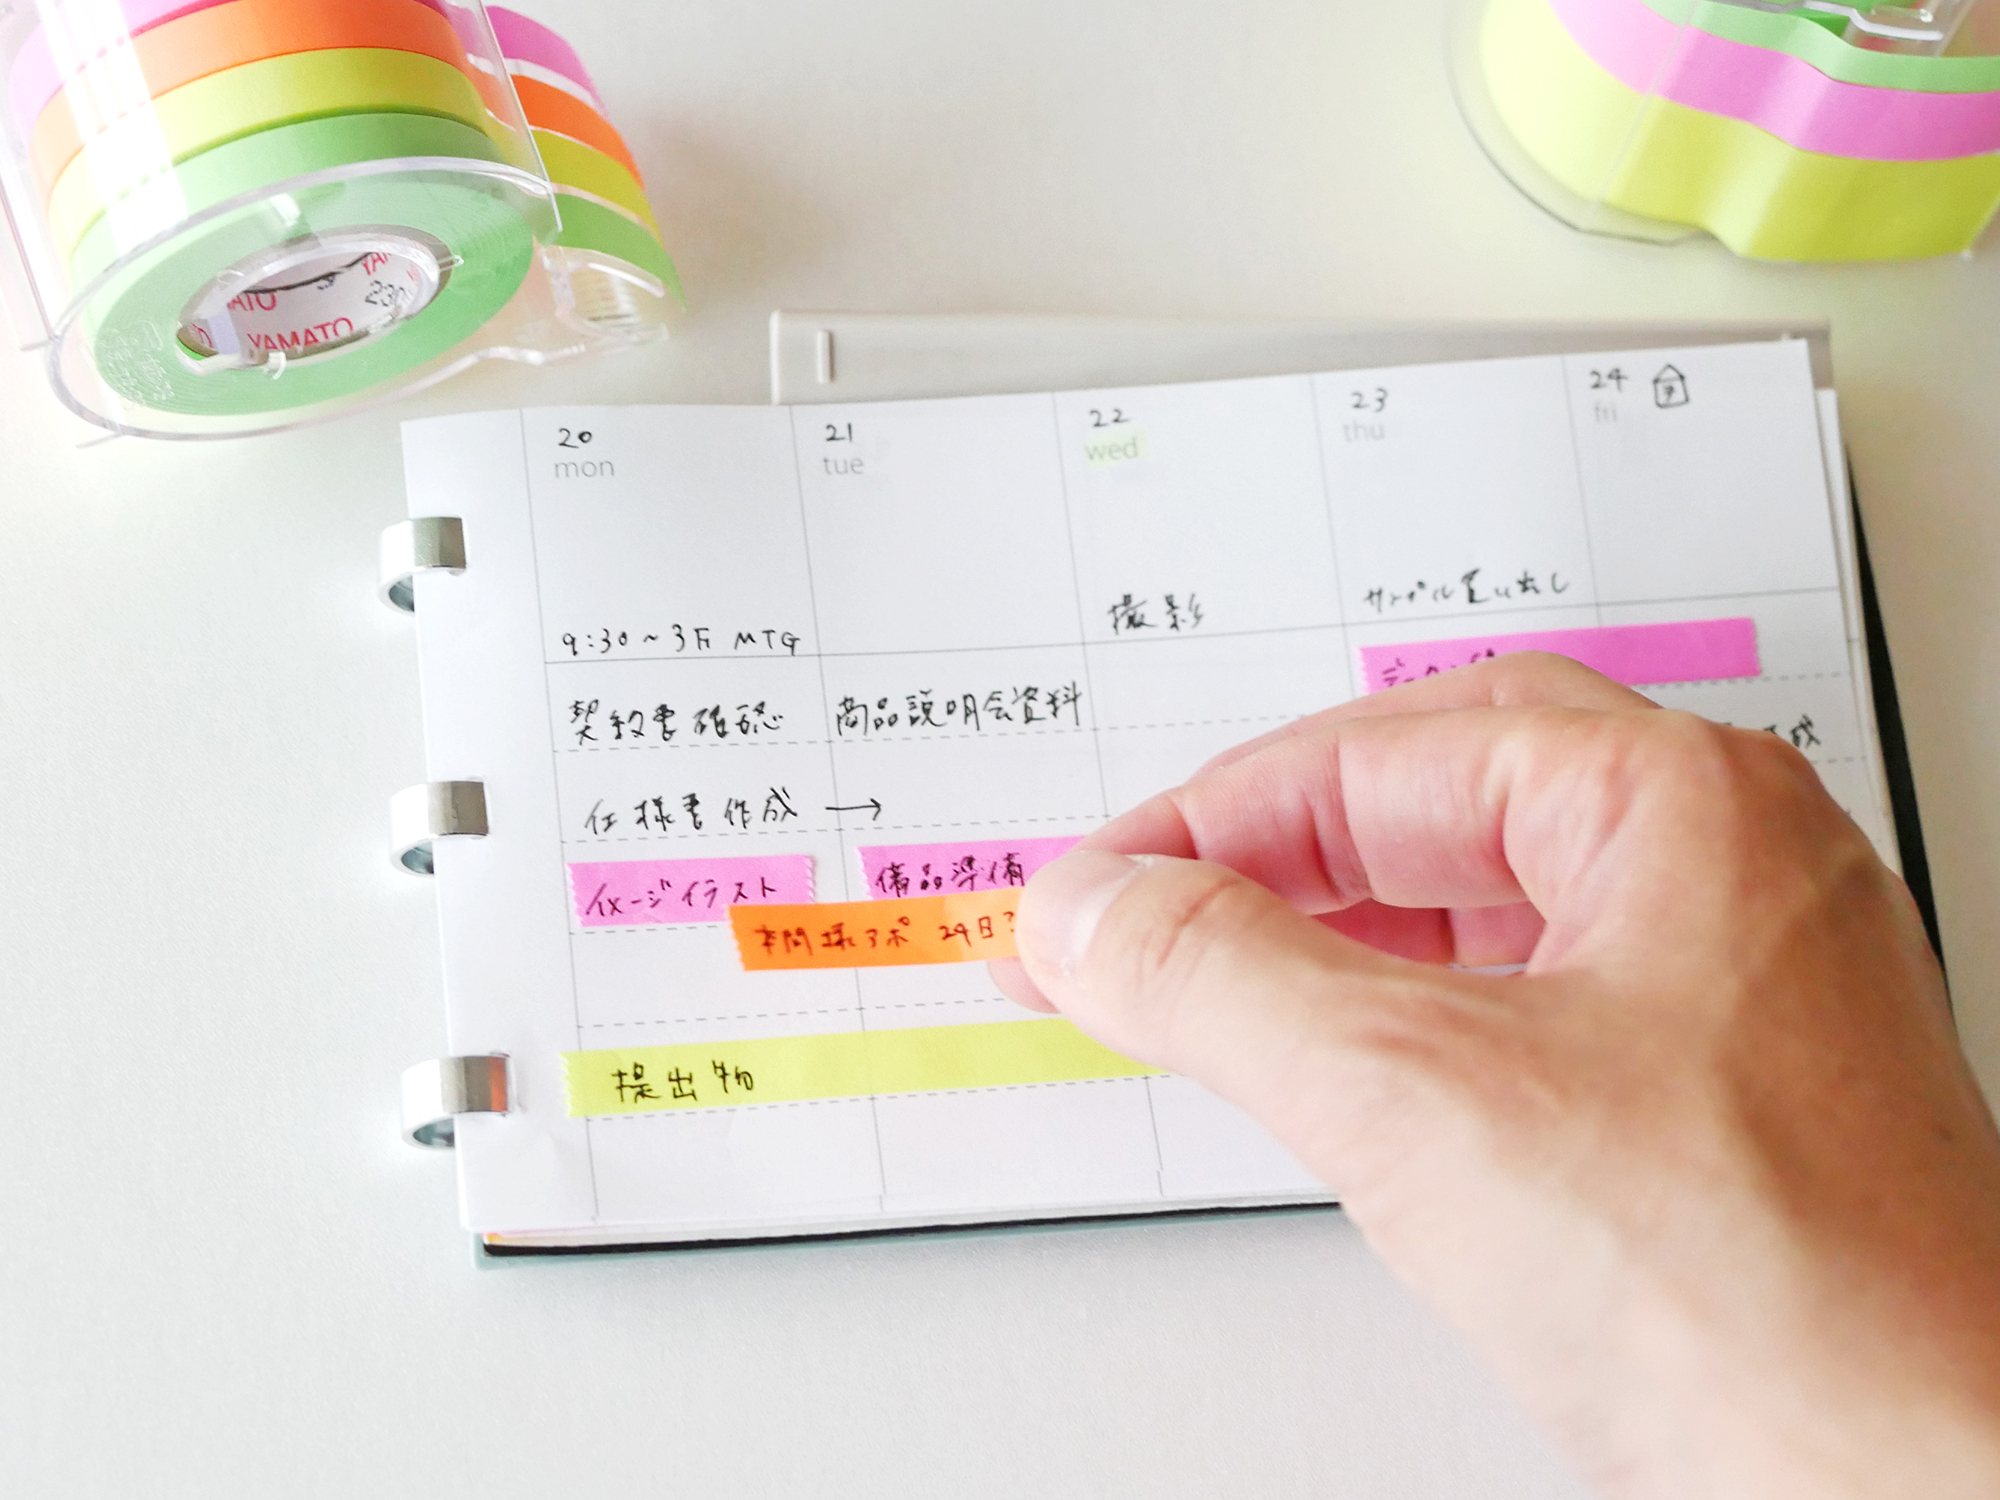 YAMATO
20
mon
21
tue
22
wed
23
thu
24
fri
9:30~3F MTG
撮影
サンプル買い出し
契約書確認
商品説明会資料
成
仕様書作成 →
イメージイラスト
備品準備
本間様アポ 24日?
提出物